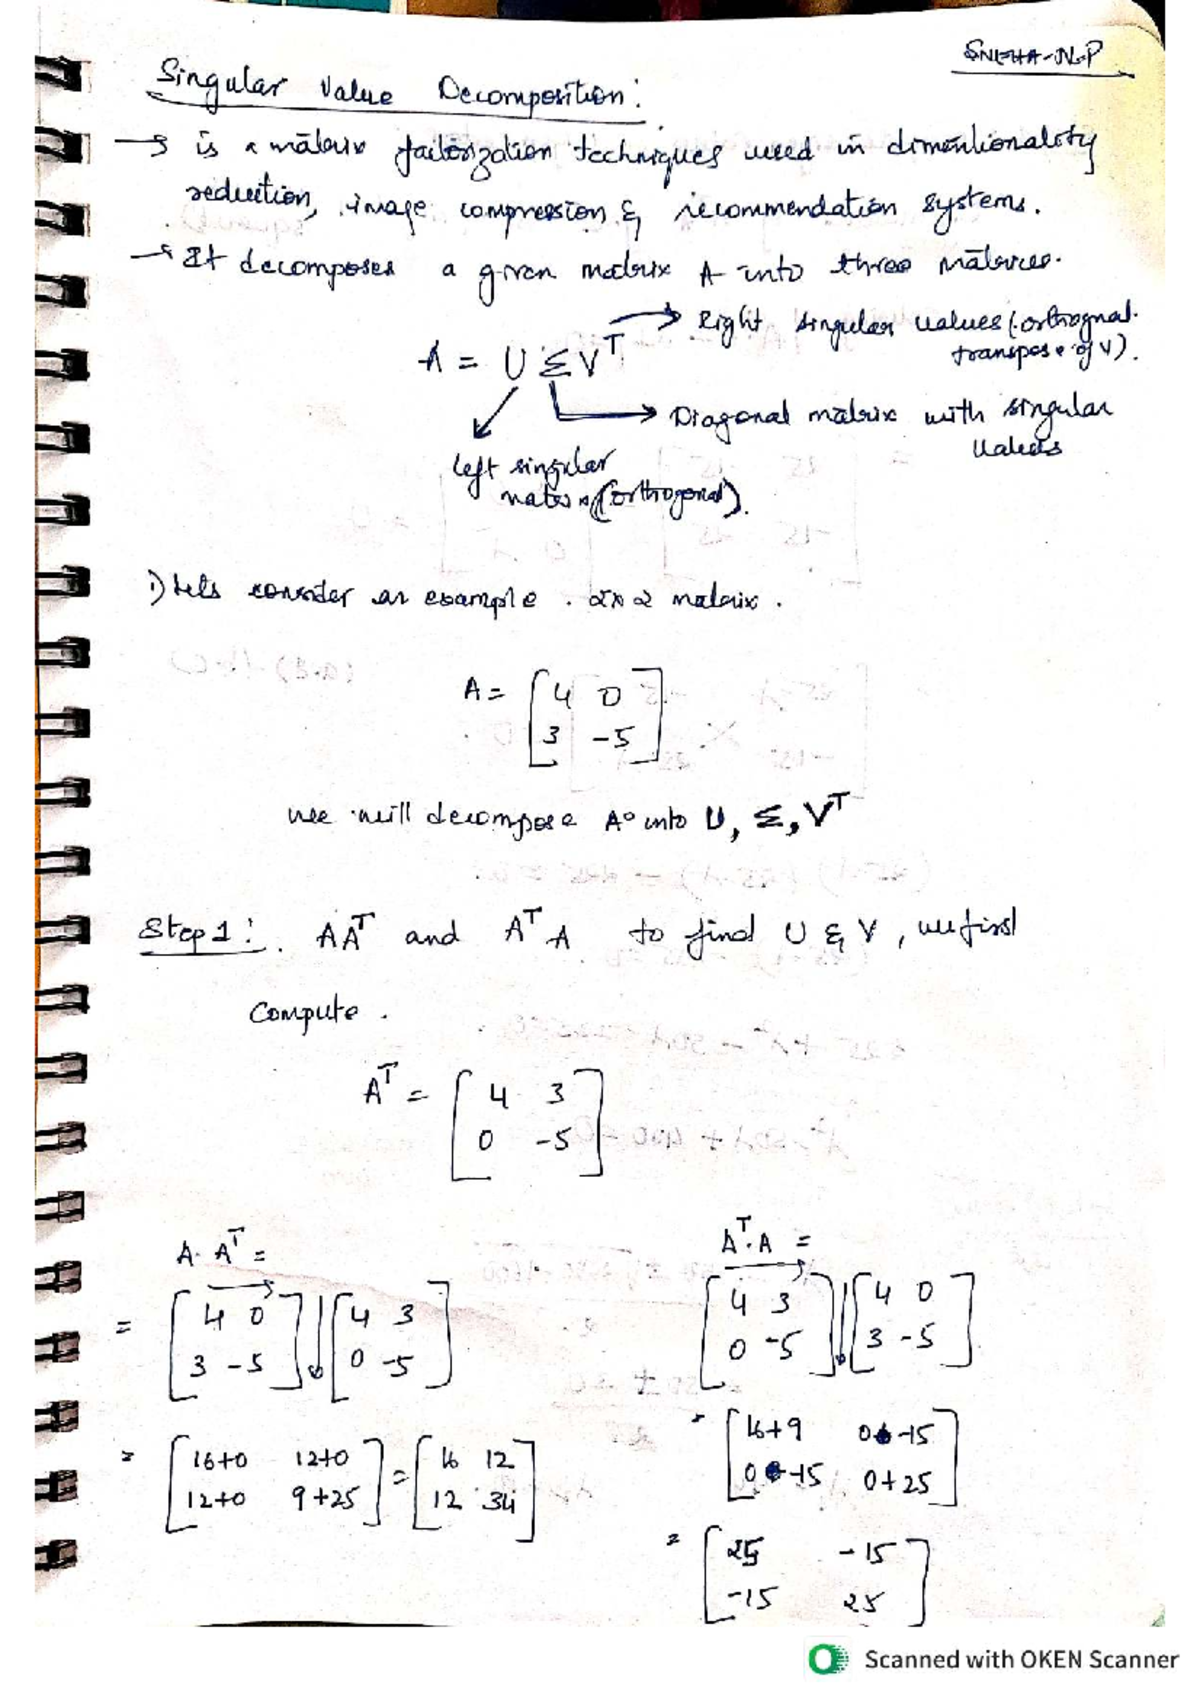 SNEHA-N.P
Singular Value Decomposition:
→ is a matrix factorization techniques used in dimentionality
reduction, image compression & recommendation systems.
→ It decomposes a given matrix A into three matrices.
A = U Σ V^T → Right singular values (orthognal transpose of V).
→ Diagonal matrix with singular values
left singular matrix (orthogonal).
1) Lets consider an example. 2x2 matrix.
A = [4 0
3 -5]
we will decompose A into U, Σ, V^T
Step 1: AA^T and A^T A to find U & V, we first
compute.
A^T = [4 3
0 -5]
A. A^T =
= [4 0 [4 3
3 -5] 0 -5]
= [16+0 12+0 = [16 12
12+0 9+25] 12 34]
A^T. A =
[4 3 [4 0
0 -5] 3 -5]
= [16+9 0-15
0-15 0+25]
= [25 -15
-15 25]
Scanned with OKEN Scanner